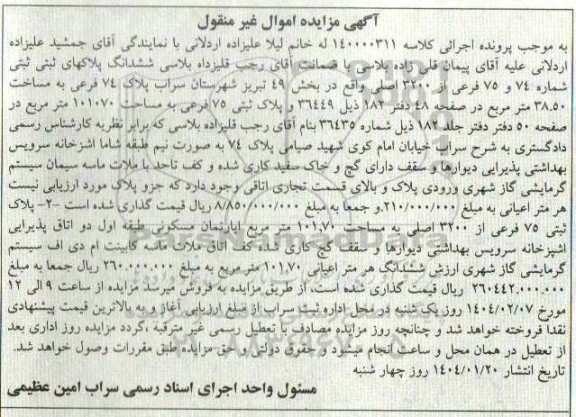 آگهی مزایده اموال غیر منقول
به موجب پرونده اجرائی کلاسه ۱۴۰۰۰۰۳۱۱ له خانم لیلا علیزاده اردلانی با نمایندگی آقای جمشید علیزاده
اردلانی علیه آقای پیمان قلی زاده بلاسی با ضمانت آقای رجب قلیزداه بلاسی ششدانگ پلاکهای ثبتی ثبتی
شماره ۷۴ و ۷۵ فرعی از ۳۲۰۰ اصلی واقع در بخش ۴۹ تبریز شهرستان سراب پلاک ۷۴ فرعی به مساحت
۳۸.۵۰ متر مربع در صفحه ۴۸ دفتر ۱۸۲ ذیل ۳۶۴۴۹ و پلاک ثبتی ۷۵ فرعی به مساحت ۱۰۱۰۷۰ متر مربع در
صفحه ۵۰ دفتر دفتر جلد ۱۸۲ ذیل شماره ۳۶۴۳۵ بنام آقای رجب قلیزاده بلاسی که برابر نظریه کارشناس رسمی
دادگستری به شرح سراب خیابان امام کوی شهید صیامی پلاک ۷۴ به صورت نیم طبقه شاما اشزخانه سرویس
بهداشتی پذیرایی دیوارها و سقف دارای گچ و خاک سفید کاری شده و کف اتاحد با ملات ماسه سیمان سیستم
گرمایشی گاز شهری ورودی پلاک و بالای قسمت تجاری اتاقی وجود دارد که جزو پلاک مورد ارزیابی نیست
هر متر اعیانی به مبلغ ۲۱۰/۰۰۰/۰۰۰.و جمعا به مبلغ ۸/۸۵۰/۰۰۰/۰۰۰ ریال قیمت گذاری شده است -۲- پلاک
ثبتی ۷۵ فرعی از ۳۲۰۰ اصلی به مساحت ۱۰۱,۷۰ متر مربع آپارتمان مسکونی طبقه اول دو اتاق پذیرایی
اشپزخانه سرویس بهداشتی دیوارها و سقف گچ کاری شده کف اتاق ملات ماسه کابینت ام دی اف سیستم
گرمایشی گاز شهری ارزش ششدانگ هر متر اعیانی ۱۰۱,۷۰ متر مربع به مبلغ ۲۶۰.۰۰۰.۰۰۰ ریال جمعا به مبلغ
۲۶۰۴۴۲.۰۰۰.۰۰۰ ریال قیمت گذاری شده است، از طریق مزایده به فروش میرسد مزایده از ساعت ۹ الی ۱۲
مورخ ۱۴۰۴/۰۲/۰۷ روز یک شنبه در محل اداره ثبت سراب از مبلغ ارزیابی آغاز و به بالاترین قیمت پیشنهادی
نقدا فروخته خواهد شد و چنانچه روز مزایده مصادف با تعطیل رسمی غیر مترقبه ،گردد مزایده روز اداری بعد
از تعطیل در همان محل و ساعت انجام میشود و حقوق دولتی و حق مزایده طبق مقررات وصول خواهد شد.
تاریخ انتشار ۱۴۰۴/۰۱/۲۰ روز چهار شنبه
مسئول واحد اجرای اسناد رسمی سراب امین عظیمی